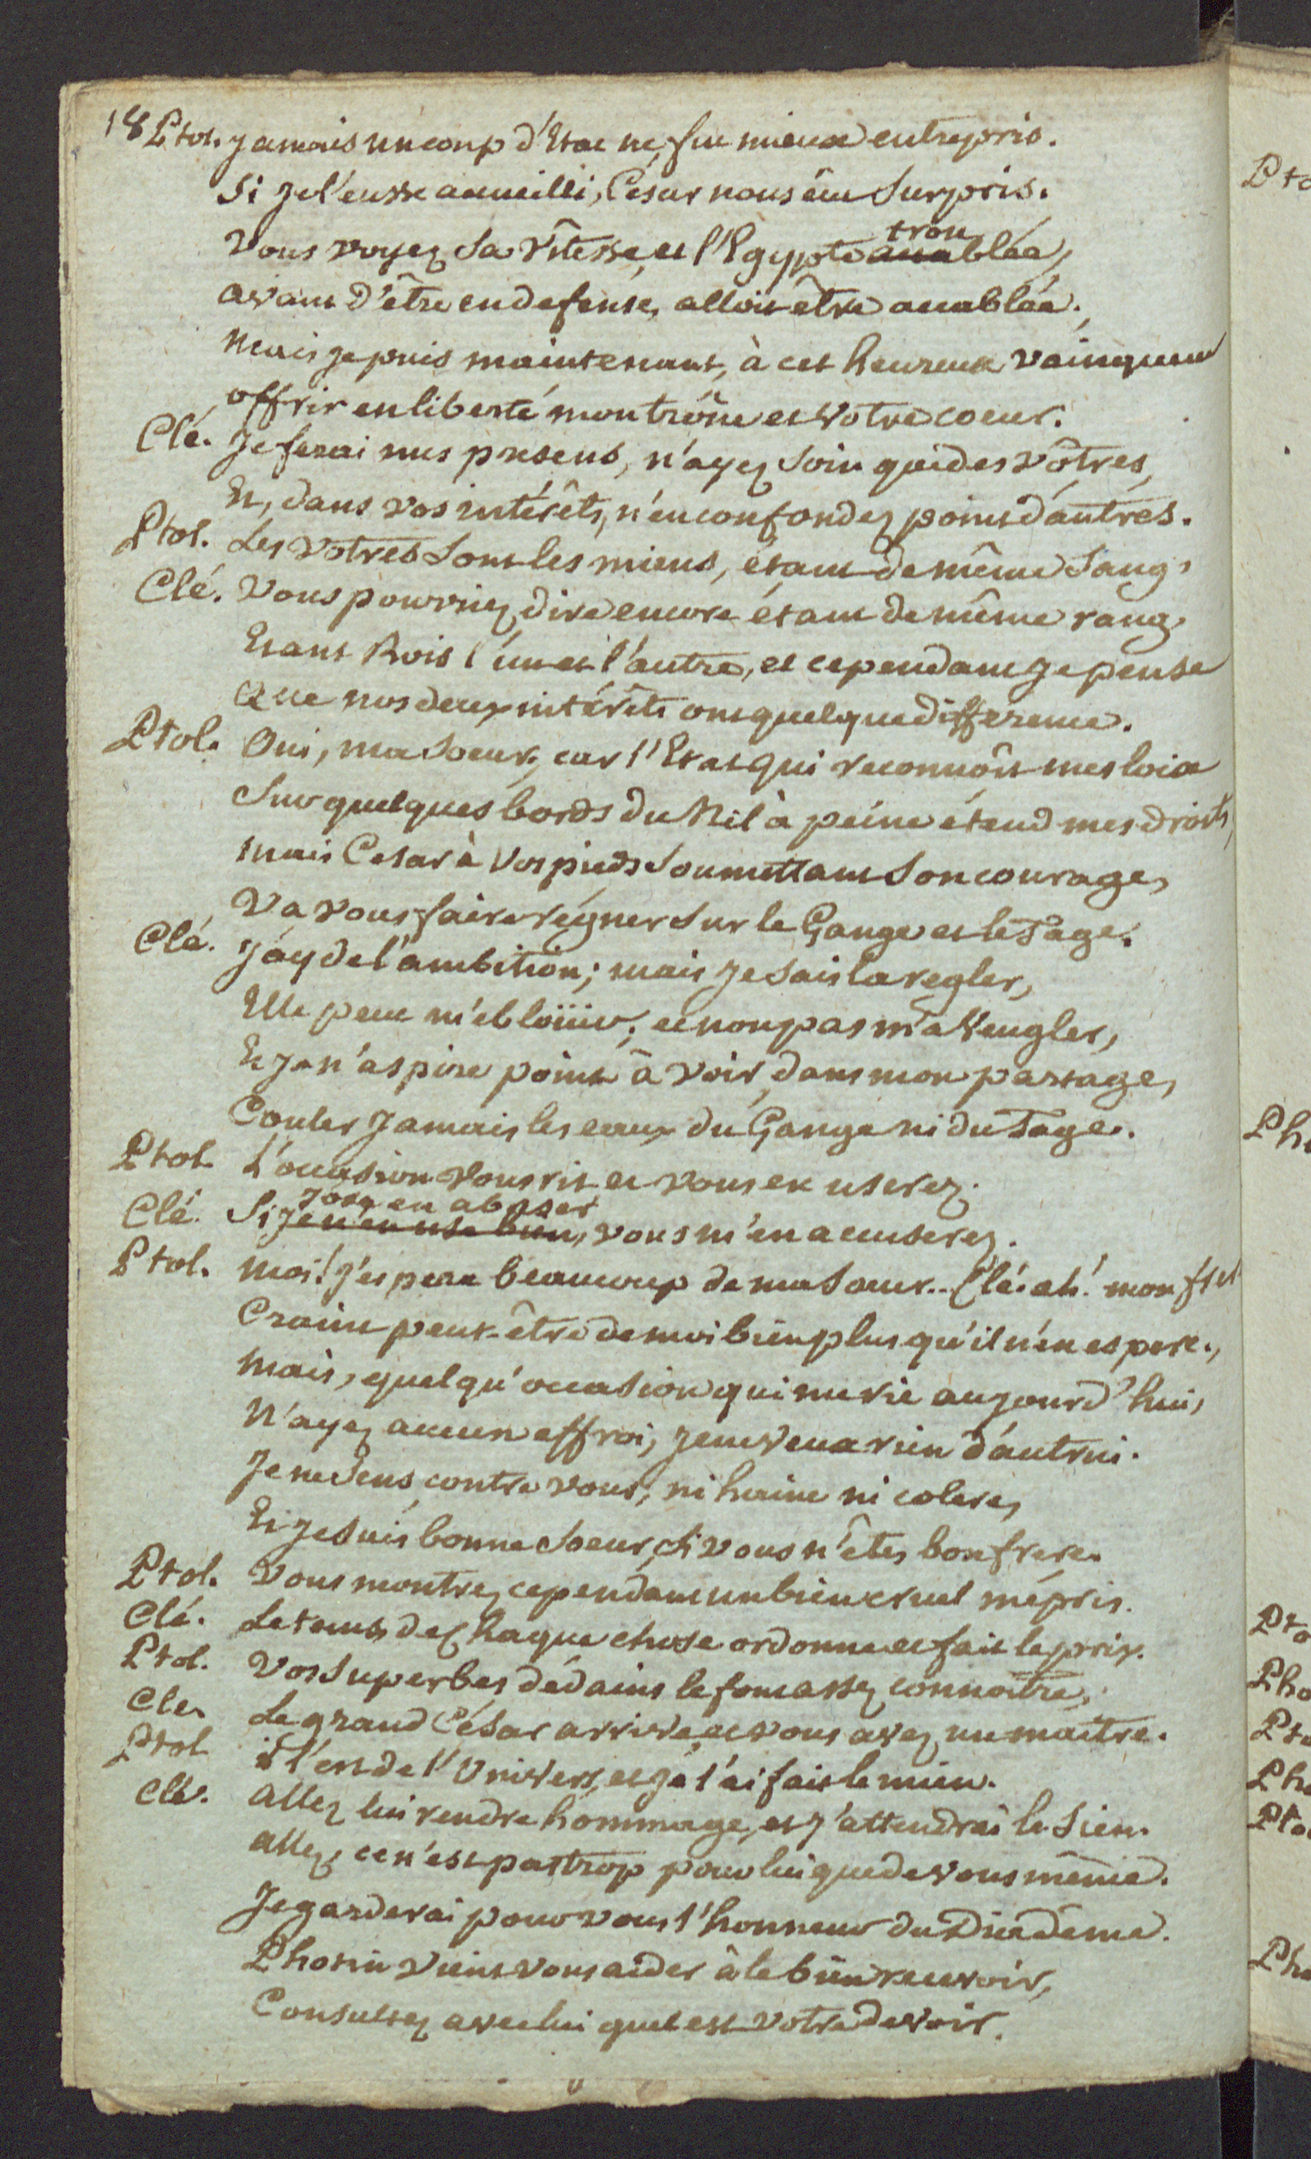 18 Ptol. Jamais un coup d'Etat ne fut mieux entrepris.
Si je l'eusse accueilli, César nous eût surpris.
Vous voyez sa vîtesse, et l'Egypte troublée,
avant d'être en defense, alloit être accablée.
mais je puis maintenant, à cet heureux vainqueur
offrir en liberté mon trône et votre coeur.
Clé. Je ferai mes presens, n'ayez soin que des vôtres,
Et, dans vos intérêts, n'en confondez point d'autres.
Ptol. Les votres sont les miens, étant de même sang,
Clé. Vous pourriez dire encore étant de même rang,
Etant Rois l'un et l'autre, et cependant je pense
Que nos deux intérêts ont quelque difference.
Ptol. Oui, ma soeur, car l'Etat qui reconnôit mes loix
Sur quelques bords du Nil à peine étend mes droits,
mais Cesar à vos pieds soumettant son courage,
Va vous faire régner sur le Gange et le Tage.
Clé. J'ay de l'ambition; mais je sais la regler,
Elle peut m'eblöüir, et non pas m'aveugler,
Et je n'aspire point à voir, dans mon partage,
Couler jamais les eaux du Gange ni du Tage.
Ptol. L'occasion vous rit et vous en userez.
Clé. Si j'ose en abuser, vous m'en accuserez.
Ptol. moi! j'espere beaucoup de ma soeur.. Clé. ah! mon frere
Craint peut-être de moi bien plus qu'il n'en espere.,
mais, quelqu'occasion qui me rie aujourd'hui,
N'ayez aucun effroi, je ne veux rien d'autrui.
Je ne sens contre vous, ni haine ni colere,
Et je suis bonne soeur, si vous n'êtes bon frere.
Ptol. Vous montrez cependant un bien cruel mépris.
Clé. Le tems de chaque chose ordonne et fait le prix.
Ptol. Vos superbes dédains le font assez connoitre,
Clé. Le grand César arrive, et vous avez un maitre.
Ptol. il l'est de l'Univers, et je l'ai fait le mien.
Clé. Allez lui rendre hommage, et j'attendrai le sien.
allez, ce n'est pas trop pour lui que de vous même.
Je garderai pour vous l'honneur du Diadême.
Photin vient vous aider à le bien recevoir,
Consultez avec lui quel est votre devoir.